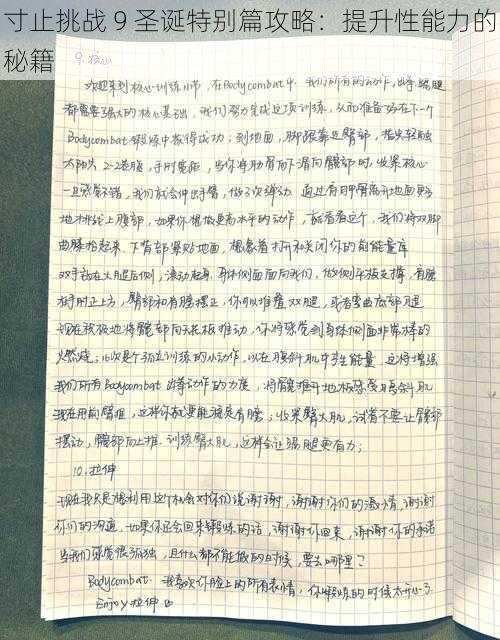 寸止挑战 9 圣诞特别篇攻略：提升性能力的
秘籍
9. 核心
欢迎来到核心训练小节，在Bodycombat中，我们所有的动作，出拳踢腿
都需要强大的核心基础，我们努力完成这项训练，从而准备好在下一个
Bodycombat锻炼中获得成功；到地面，脚跟靠近臀部，指尖轻触
太阳穴 2-2卷腹，手肘宽距，当你将肋骨向下滑向髋部时，收紧核心
一旦感觉不错，我们就会伸出手臂，做3次弹动 通过有肩胛骨离开地面更多
地才挑战上腹部，如果你想做更高水平的动作，试着看这个，我们将双脚
曲膝抬起来，下背部紧贴地面，想象着打开和关闭你的储能量库
双手放在大腿后侧，滚动起身，身体侧面面向我们，做侧平板支撑，肩膀
在肘的正上方，臀部和肩膀摆正，你可以堆叠双腿，或者弯曲底部腿
现在积极地将髋部向天花板推动，你将感觉到身体侧面非常棒的
燃烧；16次是个孤立训练的小动作，以在腹斜肌中产生能量，这将增强
我们所有Bodycombat出拳动作的力度，将髋推开地板感受腹斜肌
现在用前臂推，这样你就更能强是肩膀；收紧臀大肌，试着不要让臀部
摆动，髋部向上推，训练臀大肌，这样会让强腿更有力；
10. 拉伸
现在我只是想利用这个机会对你们说谢谢，谢谢你们的激情，谢谢
你们的沟通，如果你还会回来锻炼的话，谢谢你回来，谢谢你的承诺
当我们感觉很孤独，且什么都不能做的时候，要去哪里？
Bodycombat. 我喜欢你脸上的所有表情，你锻炼的时候太开心了
Enjoy 拉伸